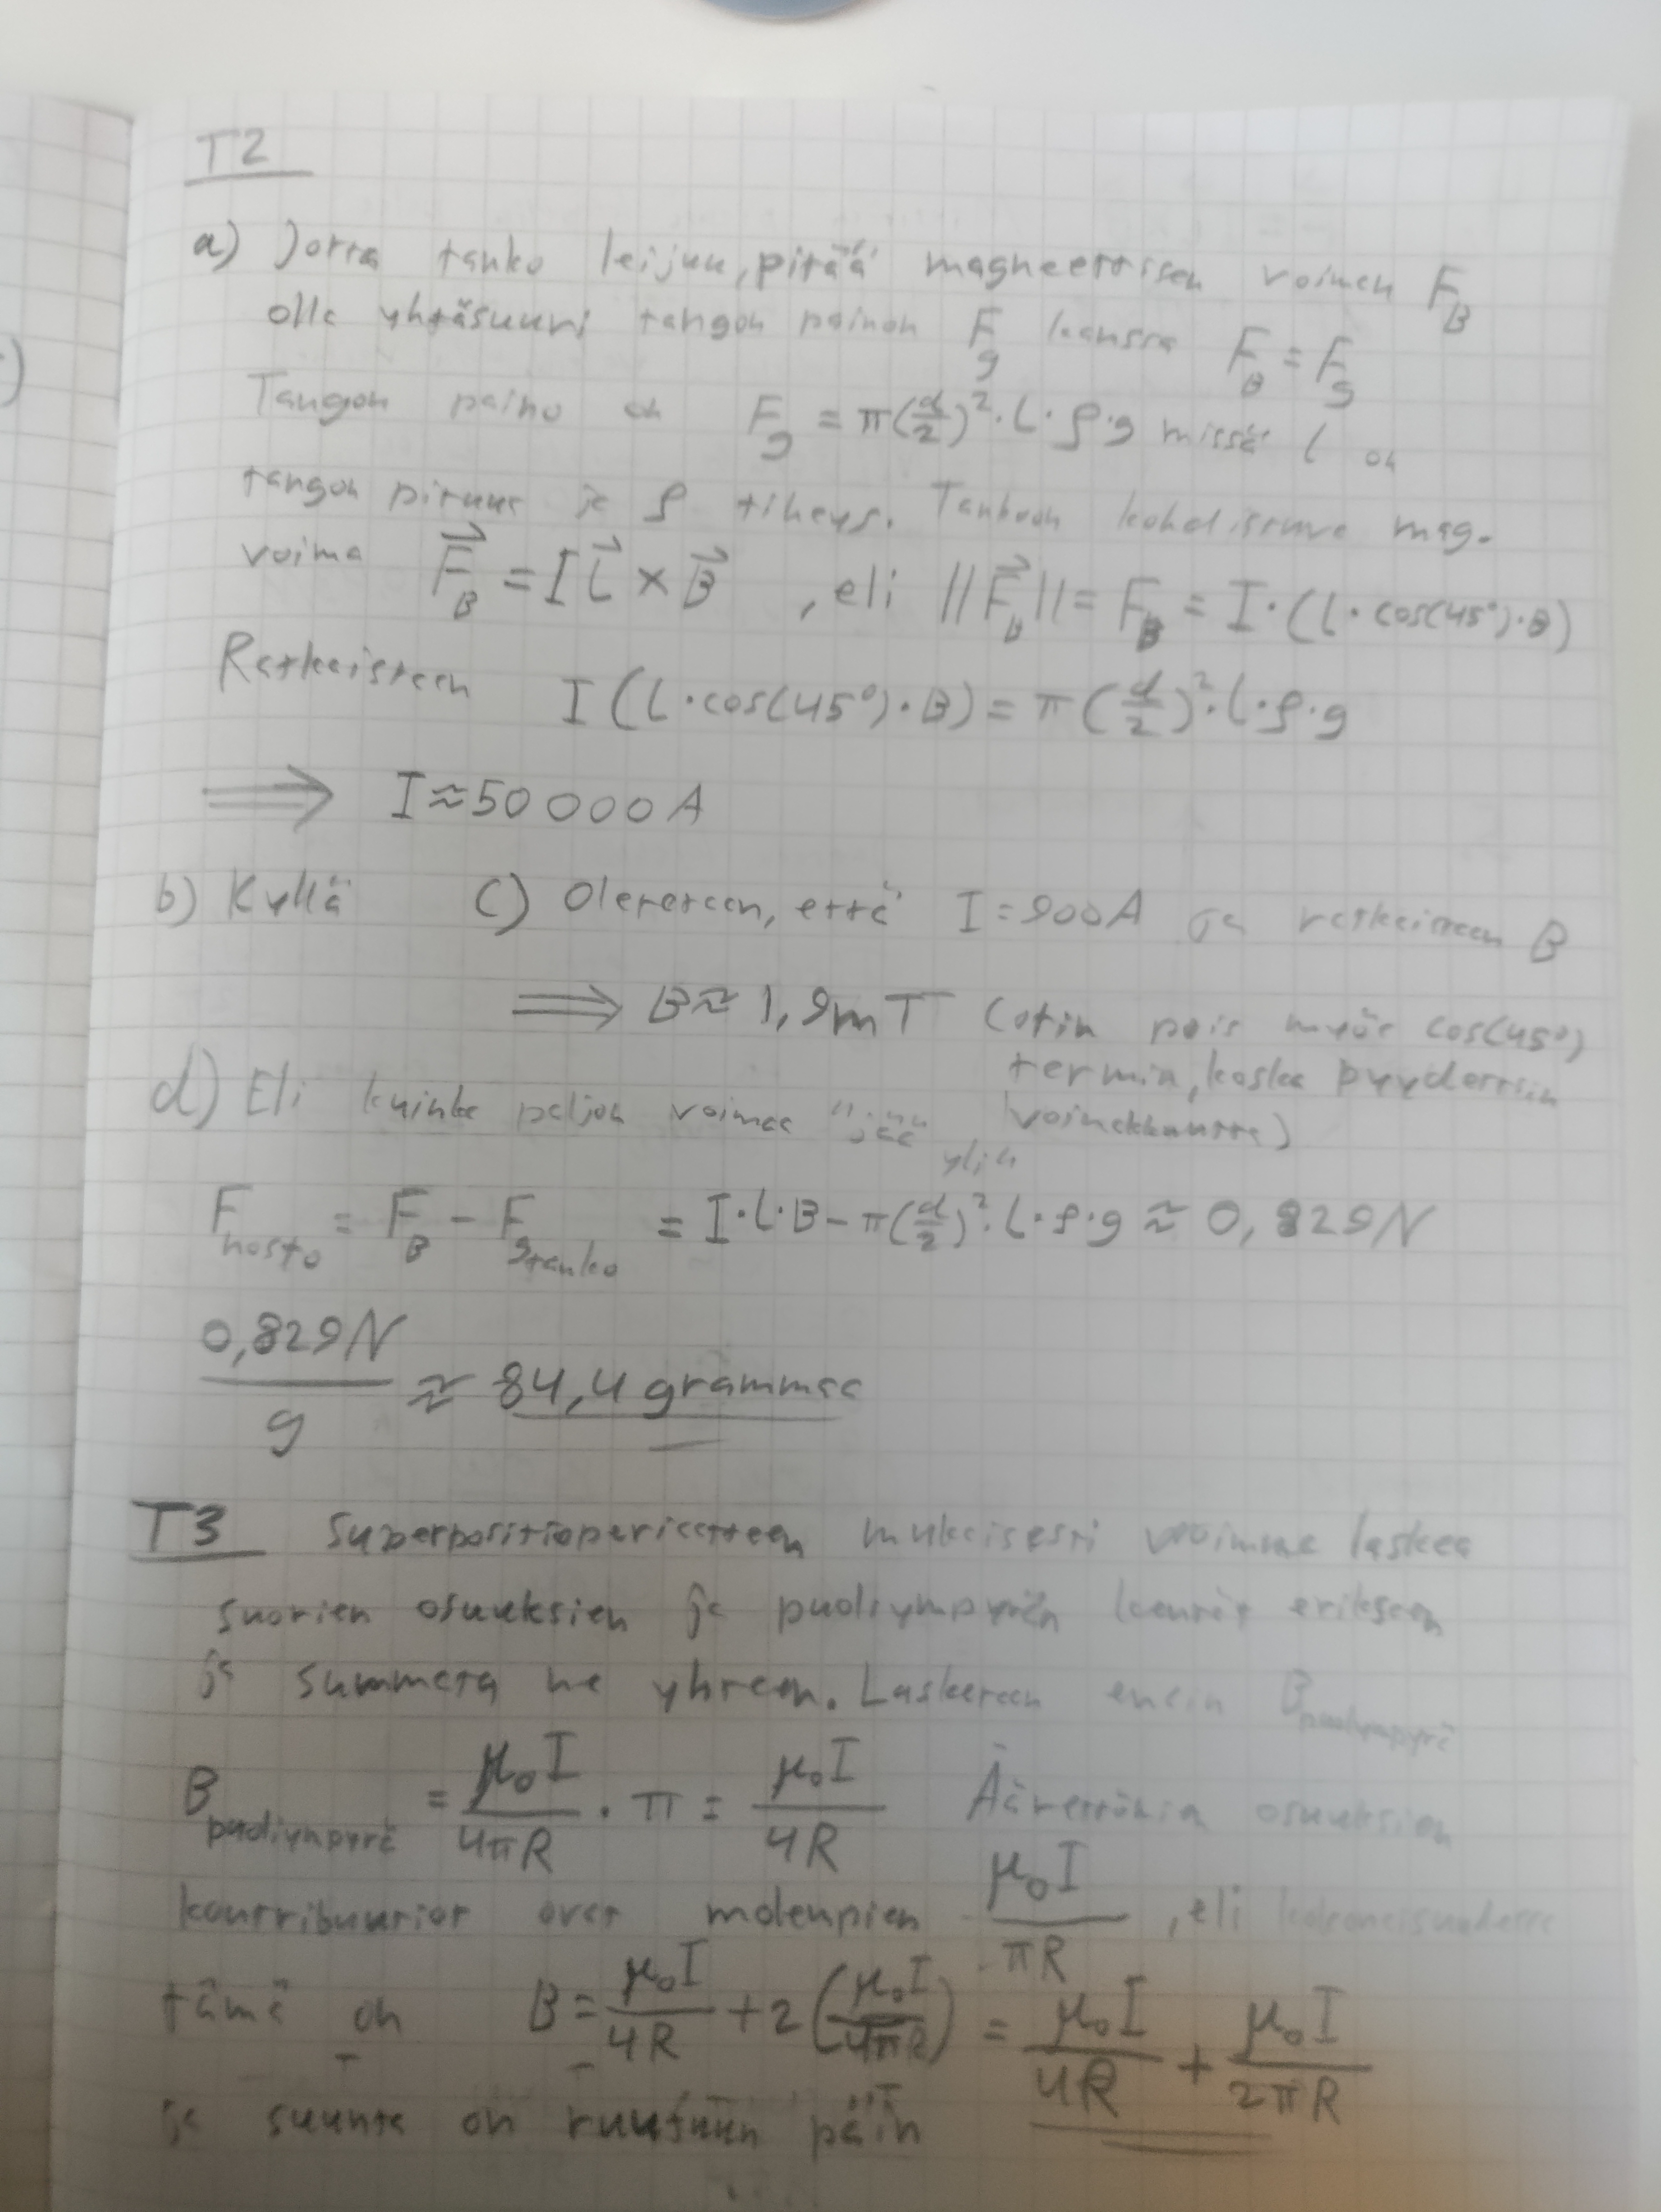 T2
a) Jotta tanko leijuu, pitää magneettisen voiman F_B
olla yhtäsuuri tangon painon F_g kanssa F_B = F_g
Tangon paino on F_g = π(d/2)²·l·ρ·g missä l on
tangon pituus ja ρ tiheys. Tankoon kohdistuva mag.
voima F⃗_B = I l⃗ × B⃗ , eli ||F⃗_B|| = F_B = I·(l·cos(45°)·B)
Ratkaistaan I(l·cos(45°)·B) = π(d/2)²·l·ρ·g
⟹ I ≈ 50 000 A
b) Kyllä c) Oletetaan, että I = 900A ja ratkaistaan B
⟹ B ≈ 1,9mT (otin pois myös cos(45°)
termin, koska pyydettiin
voimakkuutta)
d) Eli kuinka paljon voimaa "jää yli"
F_nosto = F_B − F_g tanko = I·l·B − π(d/2)²·l·ρ·g ≈ 0,829N
0,829N / g ≈ 84,4 grammaa
T3 Superpositioperiaatteen mukaisesti voimme laskea
suorien osuuksien ja puoliympyrän kentät erikseen
ja summata ne yhteen. Lasketaan ensin B_puoliympyrä
B_puoliympyrä = μ₀I/4πR · π = μ₀I/4R Äärettömien osuuksien
kontribuutiot ovat molempien μ₀I/πR , eli kokonaisuudessa
tämä on B = μ₀I/4R + 2(μ₀I/4πR) = μ₀I/4R + μ₀I/2πR
ja suunta on ruutuun päin